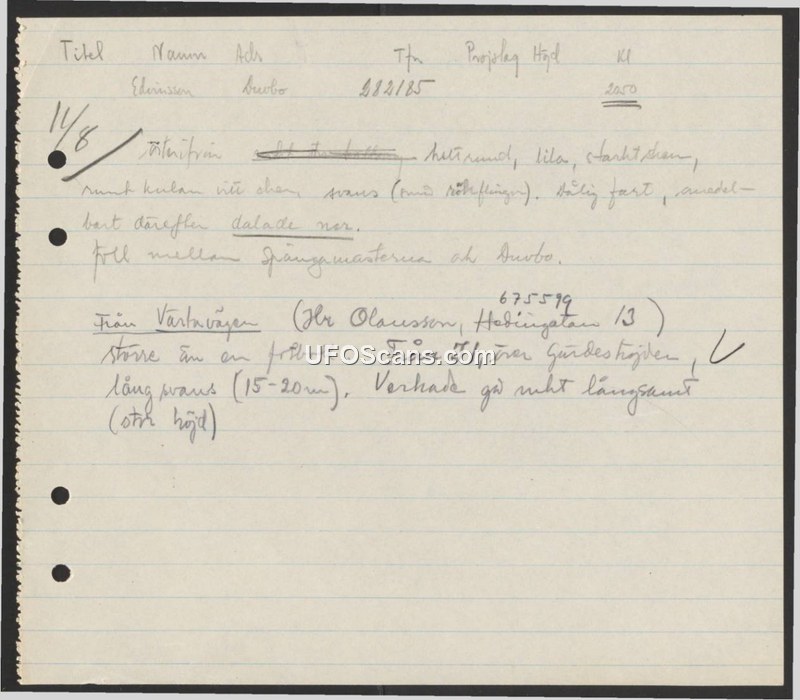 Titel Namn Adr Tfn Höjd Kl
Duvbo 282185 2050
11/8
Österifrån helt rund, lila, starkt sken,
runt kulan vitt sken, svans (små rökflingor). Dålig fart, omedel-
bart därefter dalade ner.
föll mellan Spångamasterna och Duvbo.
675599
Från Värtavägen (Hr Olausson, Hedingatan 13)
större än en över Gärdeshöjden,
lång svans (15-20m). Verkade gå långsamt
(stor höjd)
UFOScans.com